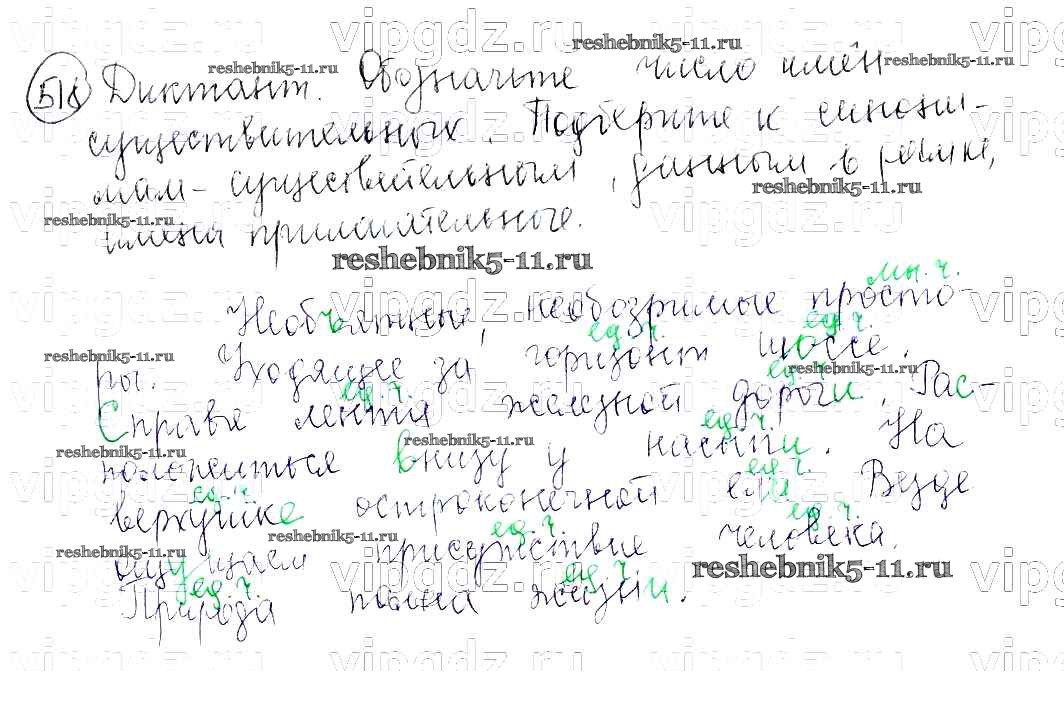 518 Диктант. Обозначьте число имён
существительных. Подберите к синони-
мам - существительным, данным в рамке,
имена прилагательные.
мн. ч.
Необъятные, необозримые просто-
ед. ч. ед. ч.
ры. Уходящее за горизонт шоссе.
ед. ч. ед. ч.
Справа лента железной дороги. Рас-
ед. ч.
положиться внизу у насыпи. На
ед. ч. ед. ч.
верхушке остроконечной ели. Везде
ед. ч. ед. ч.
ощущаем присутствие человека.
ед. ч. ед. ч.
Природа полна жизни.
vipgdz.ru
reshebnik5-11.ru